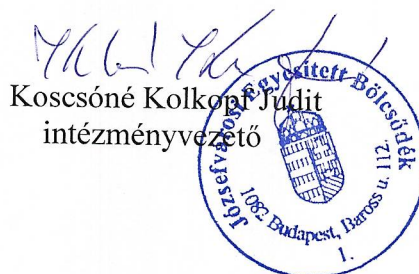 Koscsóné Kolkopf Judit
intézményvezető
Józsefvárosi Egyesített Bölcsődék
1082 Budapest, Baross u. 112.
1.